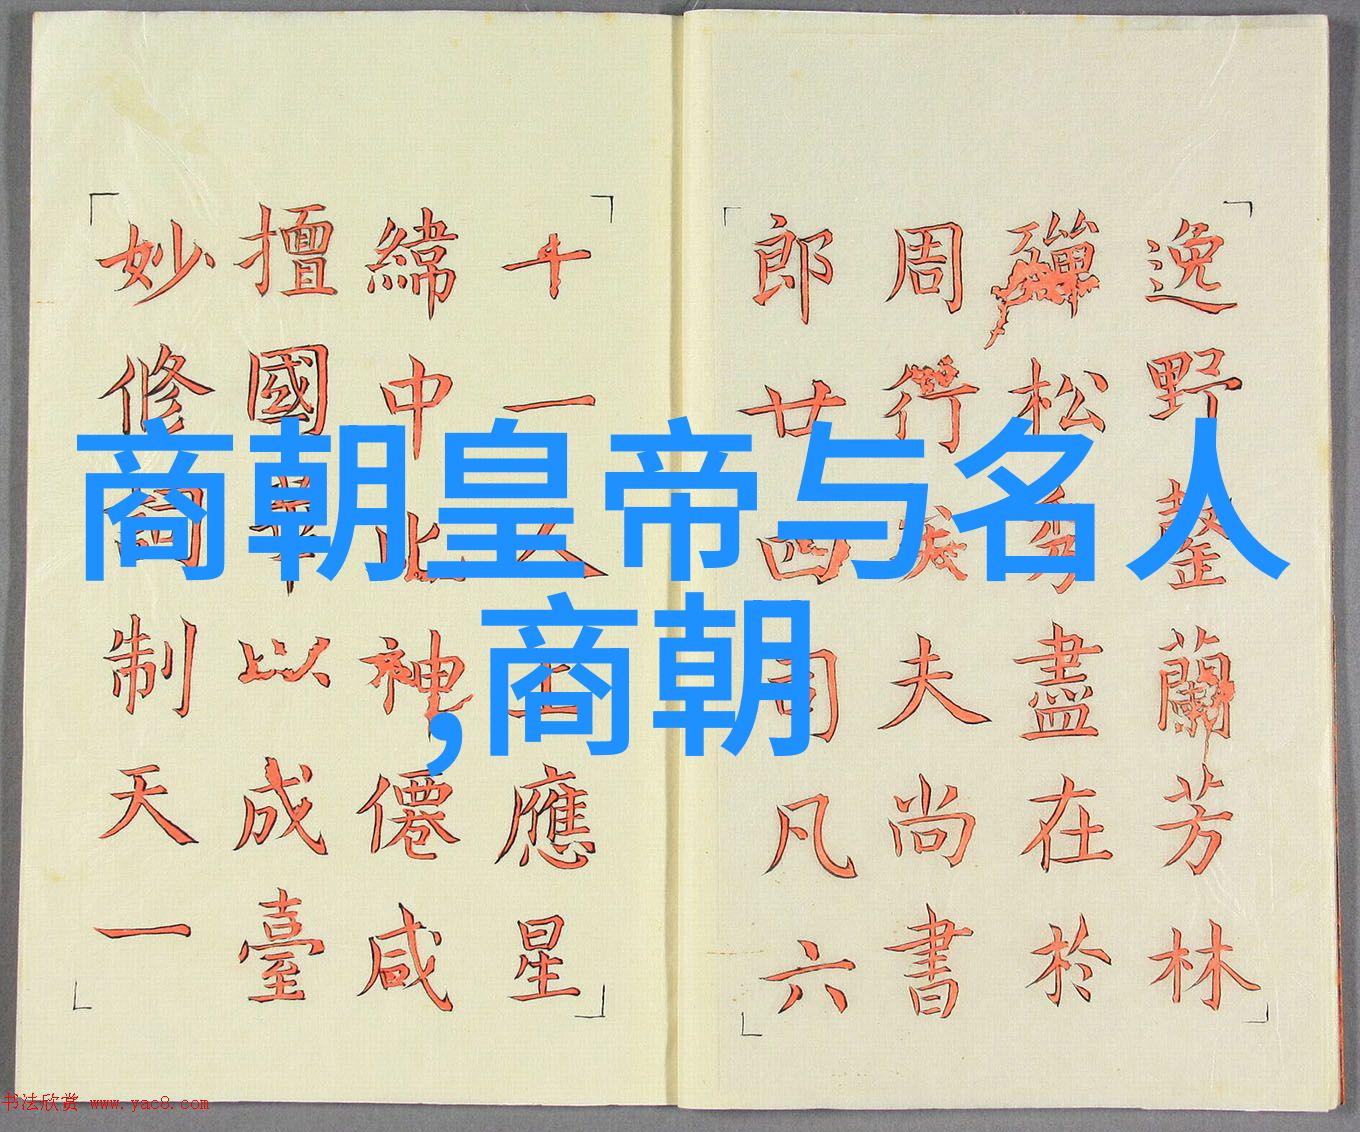 商朝皇帝与名人
,商朝
逸野蘭芳林
殫松盡在於
周行夫尚書
郎廿四司凡六
十一人上應星
緯中神僊咸
擅國以成臺
妙修制天一
书法欣赏 www.yac8.com